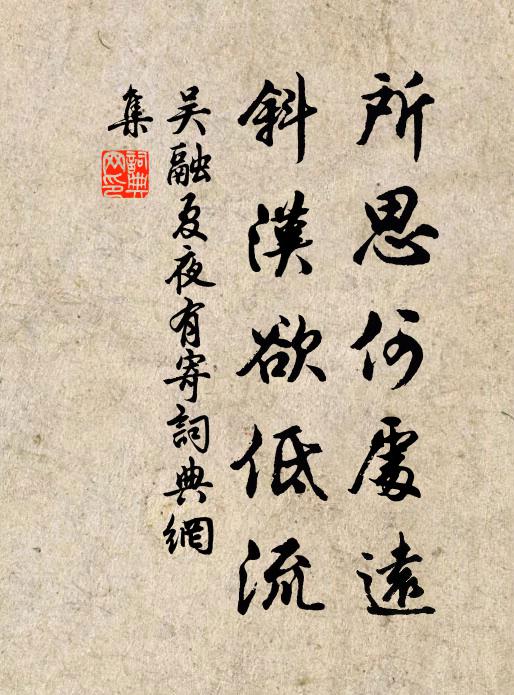 所思何處遠
斜漢欲低流
吴融夏夜有寄詞典網
集
詞典
网印